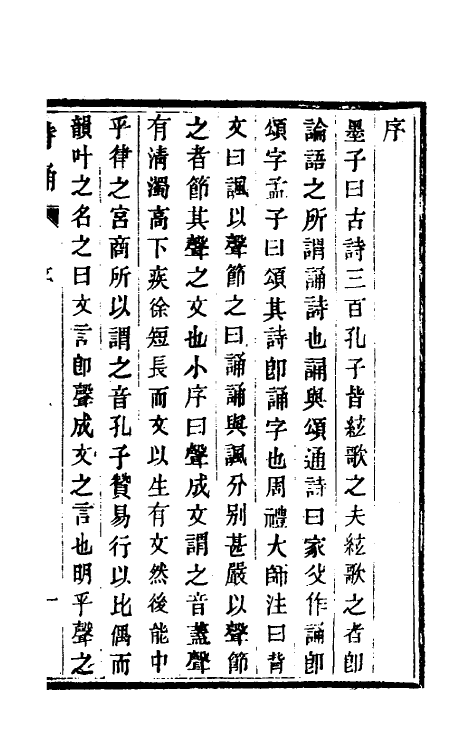 序
墨子曰古詩三百孔子皆絃歌之夫絃歌之者卽
論語之所謂誦詩也誦與頌通詩曰家父作誦卽
頌字孟子曰頌其詩卽誦字也周禮大師注曰背
文曰諷以聲節之曰誦誦與諷分别甚嚴以聲節
之者節其聲之文也小序曰聲成文謂之音蓋聲
有清濁高下疾徐短長而文以生有文然後能中
乎律之宮商所以謂之音孔子贊易行以比偶而
韻叶之名之曰文言卽聲成文之言也明乎聲之
詩誦 序 一